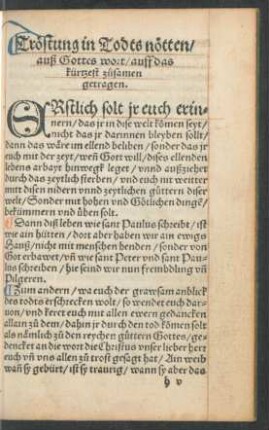 Tröstung in Todts nötten/
auß Gottes wort/ auff das
kürtzest zůsamen
getragen.
ERstlich solt jr euch erin-
nern/ das jr in dise welt kõmen seyt/
nicht das jr darinnen bleyben sollt/
dann das wåre im ellend beliben/ sonder das jr
euch mit der zeyt/ weñ Gott will/ dises ellenden
lebens arbayt hinwegk leget/ vnnd außziehet
durch das zeytlich sterben/ vnd euch nit weitter
mit disen nidern vnnd zeytlichen güttern diser
welt/ Sonder mit hohen vnd Götlichen dingẽ/
bekümmern vnd ůben solt.
Dann diß leben wie sant Paulus schreibt/ ist
wie ain hütten/ dort aber haben wir ain ewigs
Hauß/ nicht mit menschen henden/ sonder von
Got erbawet/ vñ wie sant Peter vnd sant Pau-
lus schreiben/ hie seind wir nun frembdling vñ
Pilgeren.
Zům andern/ wa euch der grawsam anblick
des todts erschrecken wolt/ so wendet euch dar-
uon/ vnd keret euch mit allen ewern gedancken
allain zů dem/ dahin jr durch den tod kõmen solt
als nämlich zů den reychen güttern Gottes/ ge-
dencket an die wort die Christus vnser lieber herr
euch vñ vns allen zů trost gesagt hat/ Ain weib
wañ sy gebürt/ ist sy traurig/ wann sy aber das
h v